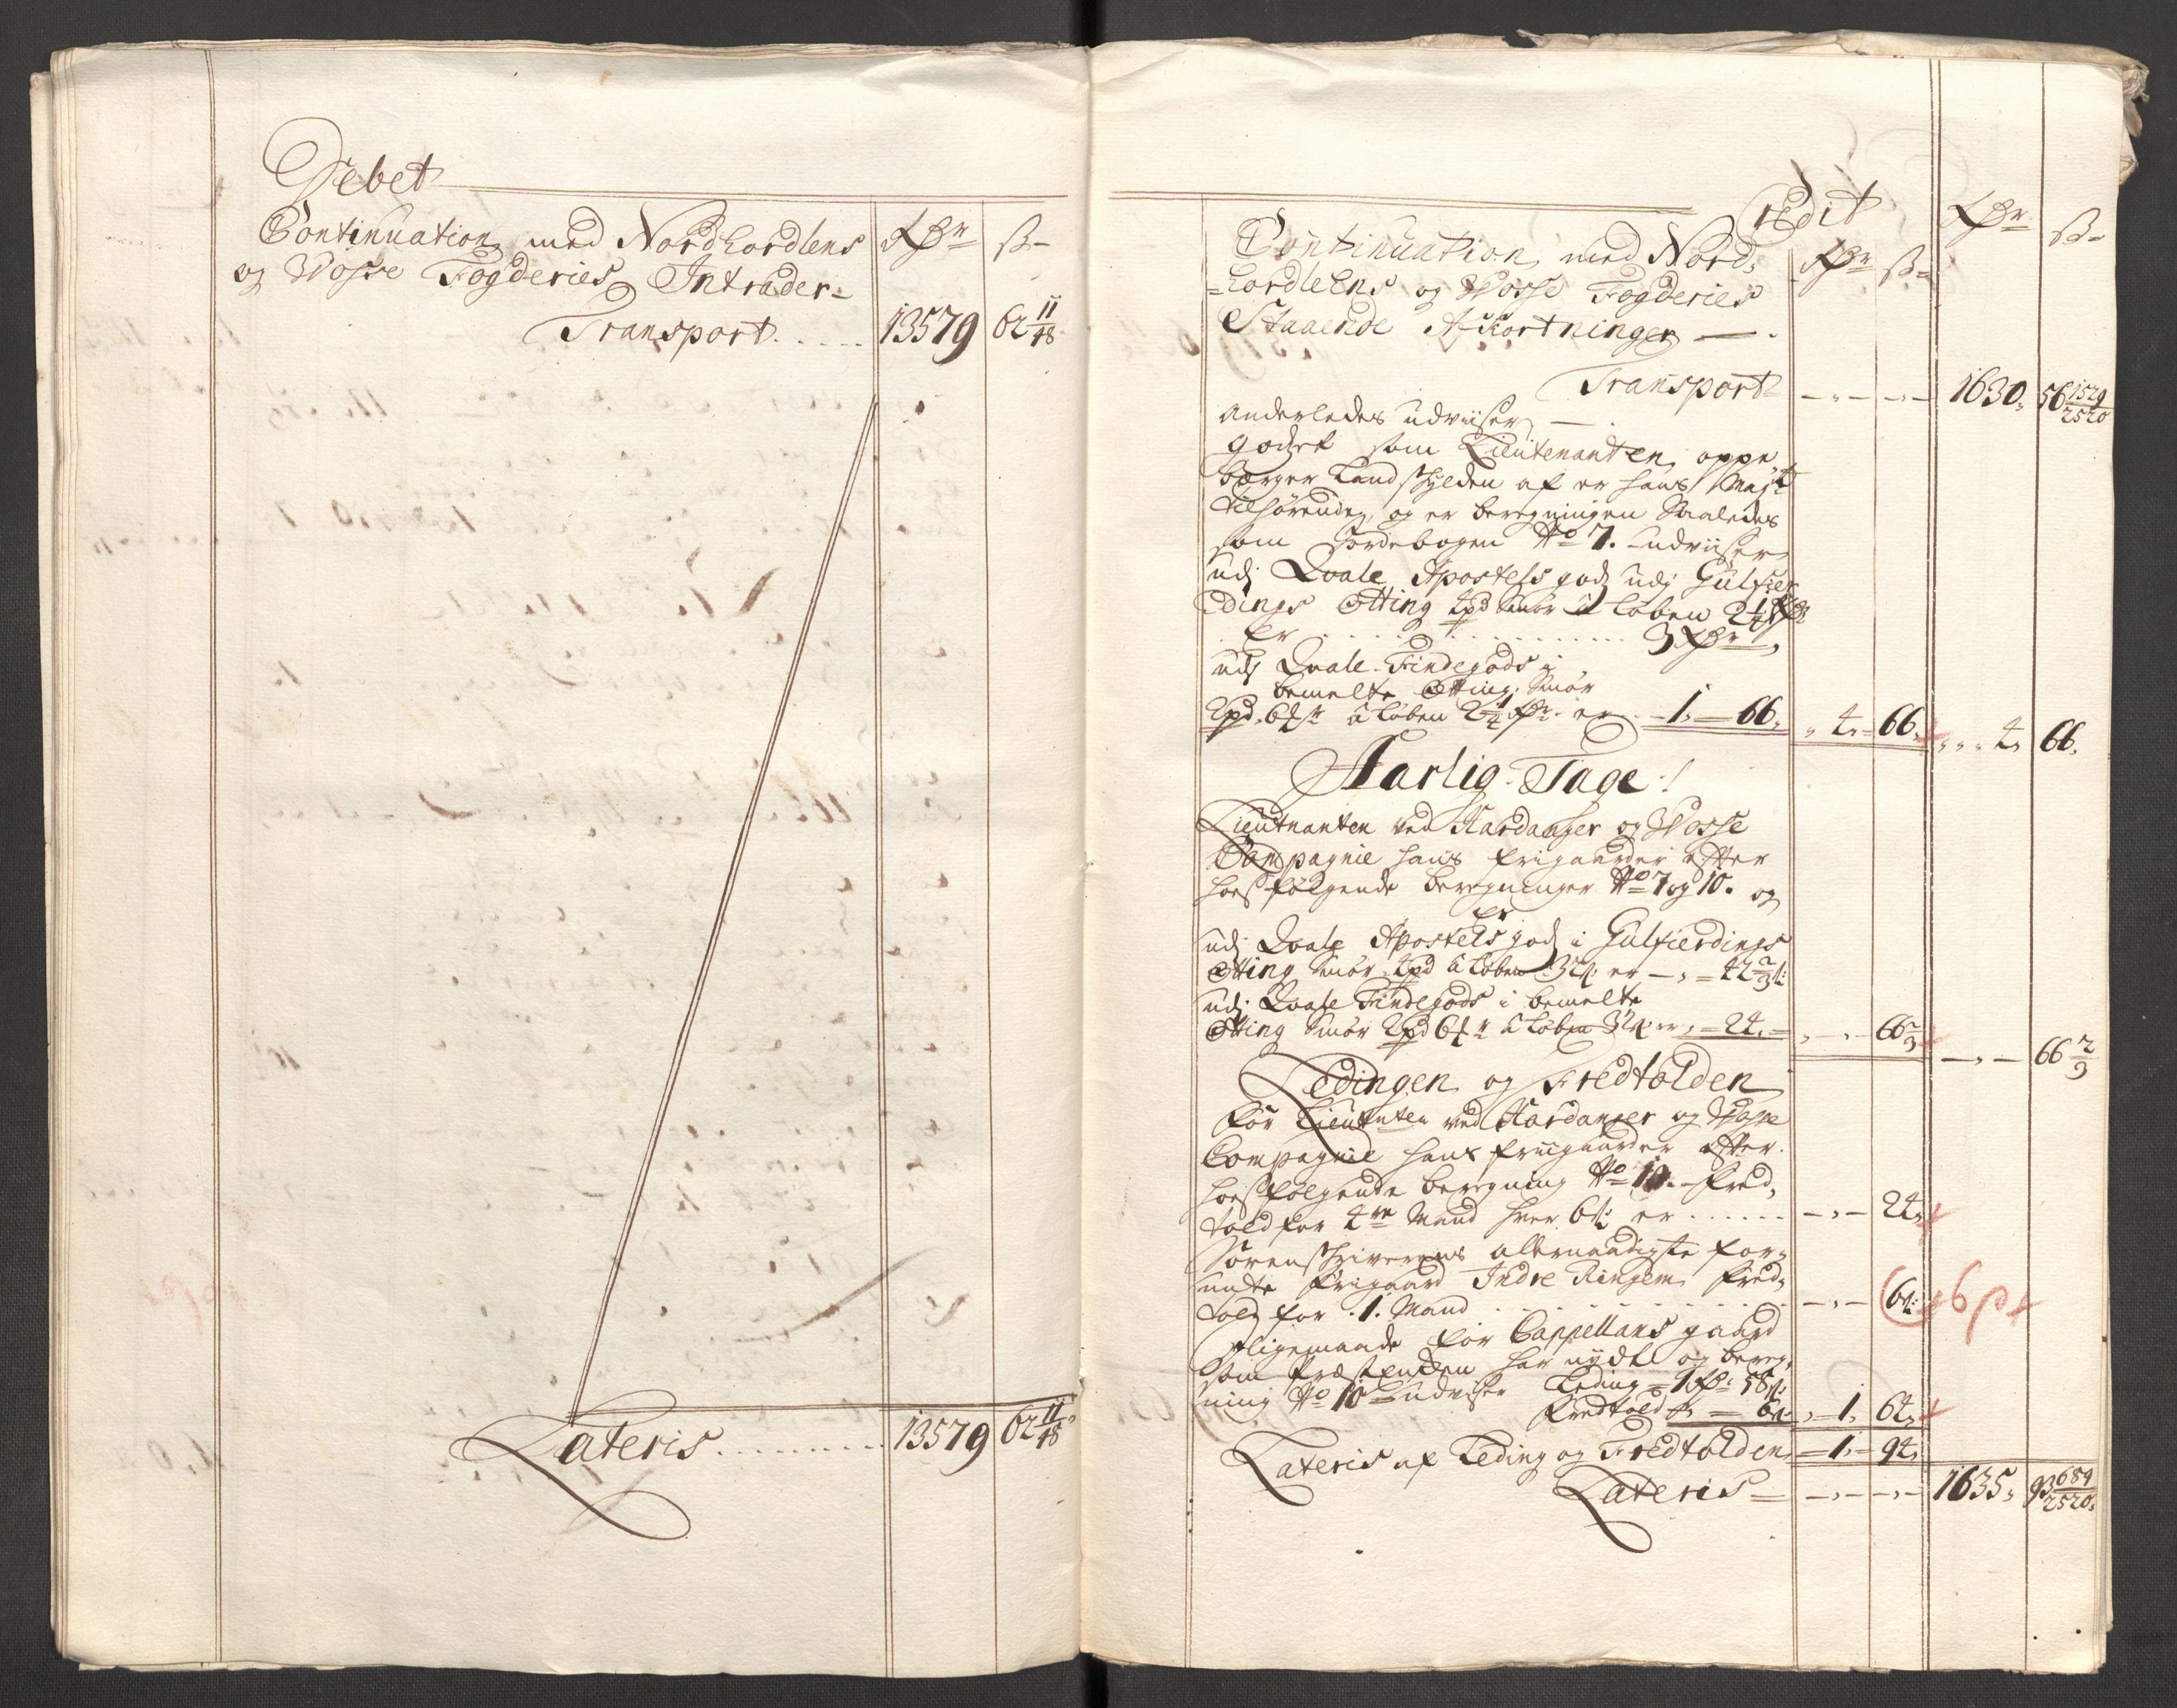 Debet
Continuation med Nordhordlens Rdr ß
og Wosse Fogderies Intrader
Transport 13579 62 11/48
Lateris 13579 62 11/48
Credit
Continuation med Nord- Rdr ß Rdr ß
hordlens og Wosse Fogderies
Staaende Afkortninger
Transport 1630 56 1529/2520
anderledes udviiser
godset som Lieutenanten oppe
bærger Landskylden af er hans Mayts
tilhørende, og er beregningen Saaledes
som Jordebogen No 7. udviiser
udj Qvale Apostels godz udj Gulfier
dings Otting 4pd Smør à løben 2 1/4 Rdr
er 3 Rdr
udj Qvale Findegods i
bemelte Otting Smør
2pd 6 à løben 2 1/4 Rdr er 1 66 4 66 4 66
Aarlig Tage
Lieutnanten ved Hardanger og Wosse
Compagnie hans frigaarder efter
hosfølgende beregninger No 7 og 10. og
er
udj Qvale Apostels godz i Gulfierdings
Otting Smør 4pd à løben 32ß er 42 2/3 ß
udj Qvale Findegods i bemelte
Otting Smør 2pd 6 à løben 32ß er 24 66 2/3 66 2/3
Ledingen og Fredtolden
for Lieutnten ved Hardanger og Wosse
Compagnie hans friigaarder efter
hosfølgende beregning No 10. Fred-
told for 4re Mand hver 6ß er 24
Sorenskriverens allernaadigste for-
undte frigaard Indre Ringem fred-
told for 1. Mand 6ß
Ligemaade for Cappellans gaard
som Præstenken har nydt og bereg-
ning No 10 udviser Leding 1 Rdr 58ß
Fredtold 6ß 1 64
Lateris af Leding og Fredtolden 1 94
Lateris 1635 93 689/2520